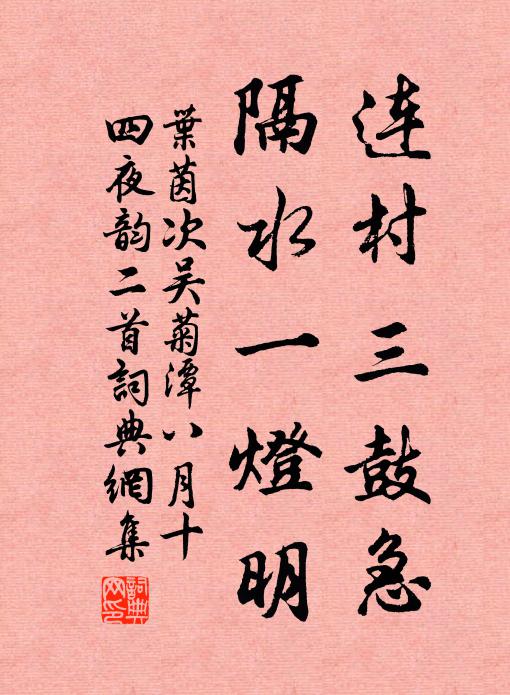 連村三鼓急
隔水一燈明
葉茵次吴菊潭八月十
四夜韵二首詞典網集
詞典網印